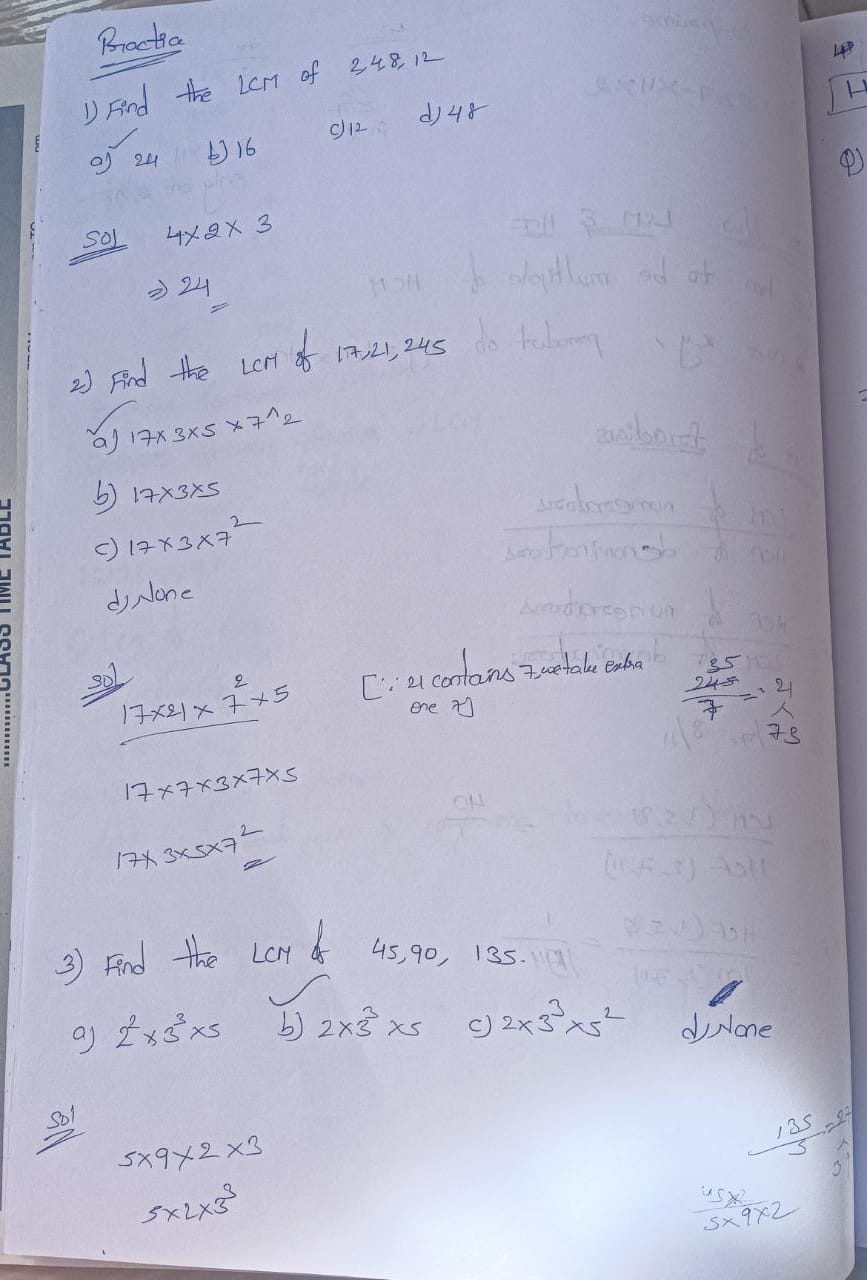 Practice
1) Find the LCM of 2,4,8,12
a) 24 b) 16 c) 12 d) 48
Sol 4×2×3
⇒ 24
2) Find the LCM of 17,21,245
a) 17×3×5×7^2
b) 17×3×5
c) 17×3×7²
d) None
Sol 17×21×7²×5 [∵ 21 contains 7, we take extra
one 7]
35
245
7
= 21
73
17×7×3×7×5
17×3×5×7²
3) Find the LCM of 45,90, 135.
a) 2²×3³×5 b) 2×3³×5 c) 2×3³×5² d) None
Sol
5×9×2×3
5×2×3³
135
5
45×2
5×9×2
CLASS TIME TABLE
Q)